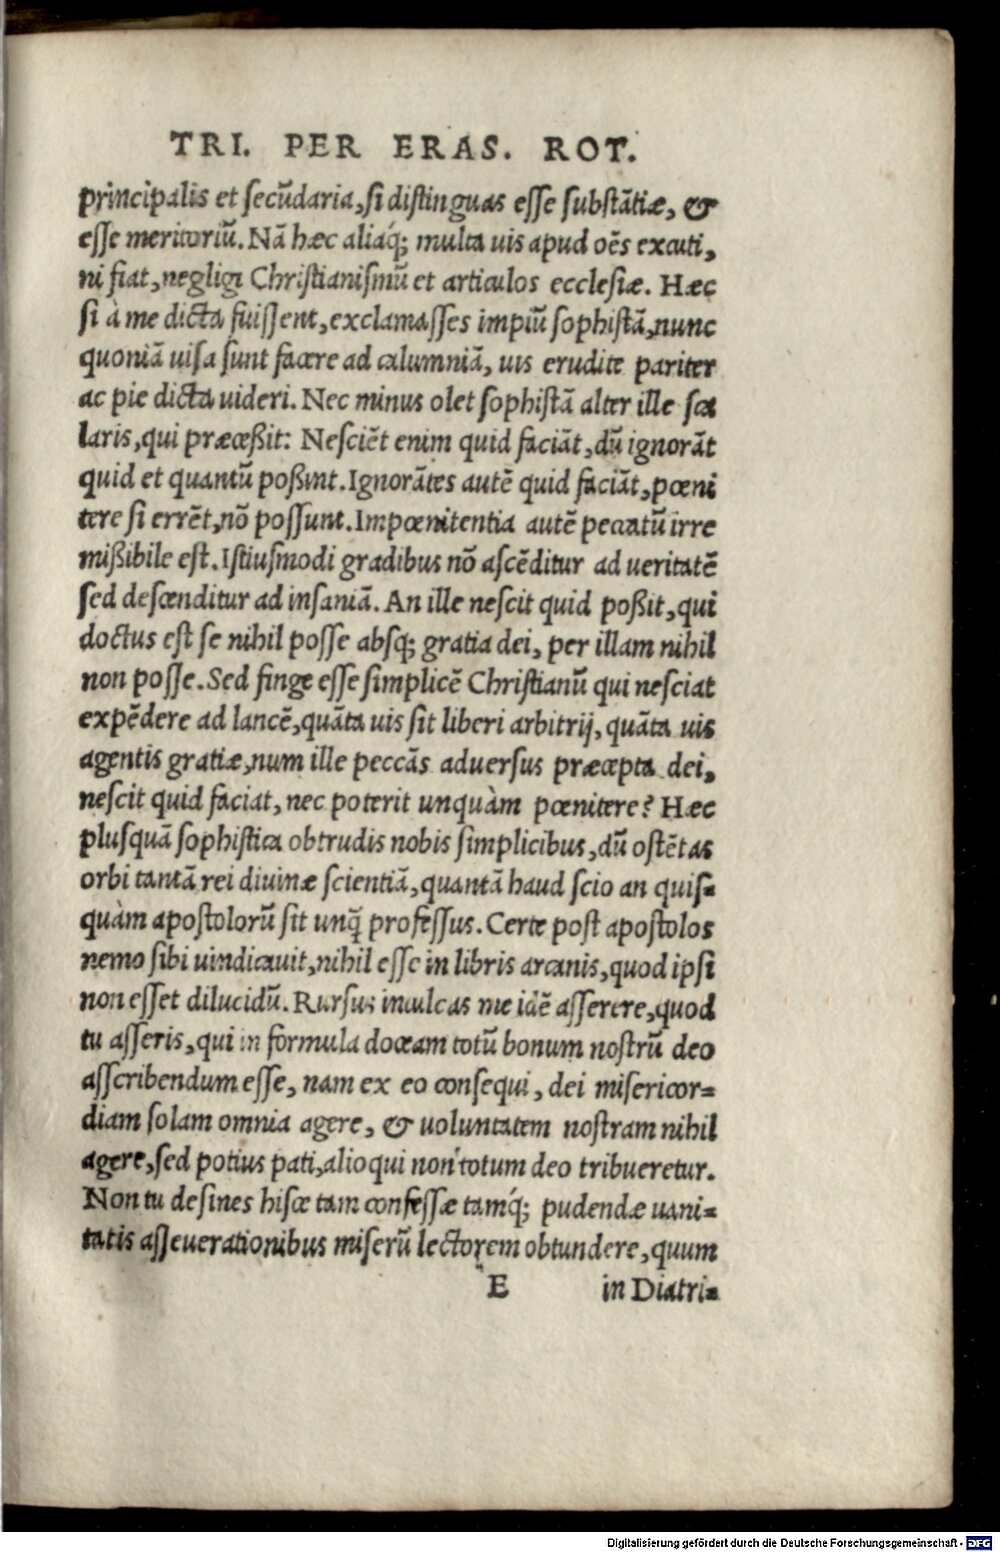 TRI. PER ERAS. ROT.
principalis et secũdaria, si distinguas esse substãtiæ, &
esse meritoriũ. Nã hæc aliaq́; multa uis apud oẽs excuti,
ni fiat, negligi Christianismũ et articulos ecclesiæ. Hæc
si à me dicta fuissent, exclamasses impiũ sophistã, nunc
quoniã uisa sunt facere ad calumniã, uis erudite pariter
ac pie dicta uideri. Nec minus olet sophistã alter ille sca
laris, qui præceßit: Nesciẽt enim quid faciãt, dũ ignorãt
quid et quantũ poßint. Ignorãtes autẽ quid faciãt, pœni
tere si errẽt, nõ possunt. Impœnitentia autẽ peccatũ irre
mißibile est. Istiusmodi gradibus nõ ascẽditur ad ueritatẽ
sed descenditur ad insaniã. An ille nescit quid poßit, qui
doctus est se nihil posse absq; gratia dei, per illam nihil
non posse. Sed finge esse simplicẽ Christianũ qui nesciat
expẽdere ad lancẽ, quãta uis sit liberi arbitrij, quãta uis
agentis gratiæ, num ille peccãs aduersus præcepta dei,
nescit quid faciat, nec poterit unquàm pœnitere? Hæc
plusquã sophistica obtrudis nobis simplicibus, dũ ostẽtas
orbi tantã rei diuinæ scientiã, quantã haud scio an quis=
quàm apostolorũ sit unq̃ professus. Certe post apostolos
nemo sibi uindicauit, nihil esse in libris arcanis, quod ipsi
non esset dilucidũ. Rursus inculcas me idẽ asserere, quod
tu asseris, qui in formula doceam totũ bonum nostrũ deo
asscribendum esse, nam ex eo consequi, dei misericor=
diam solam omnia agere, & uoluntatem nostram nihil
agere, sed potius pati, alioqui non totum deo tribueretur.
Non tu desines hisce tam confessæ tamq́; pudendæ uani=
tatis asseuerationibus miserũ lectorem obtundere, quum
E in Diatri=
Digitalisierung gefördert durch die Deutsche Forschungsgemeinschaft - DFG